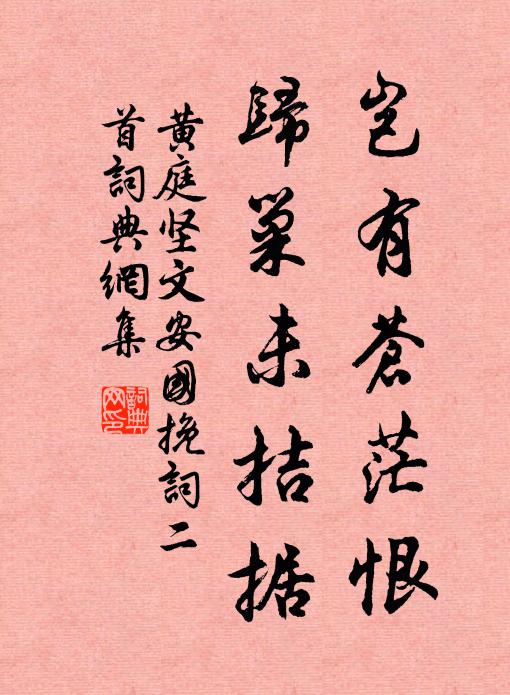 岂有蒼茫恨
歸巢未拮据
黄庭坚文安國挽詞二
首詞典網集
詞典
网印